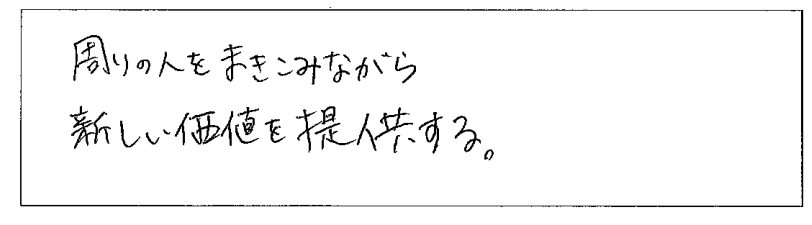 周りの人をまきこみながら
新しい価値を提供する。